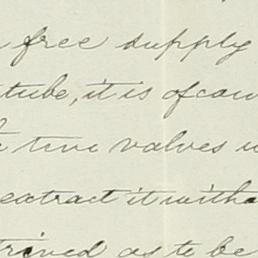 free supply
tube, it is of cou
two valves
extract it with
trived as to be